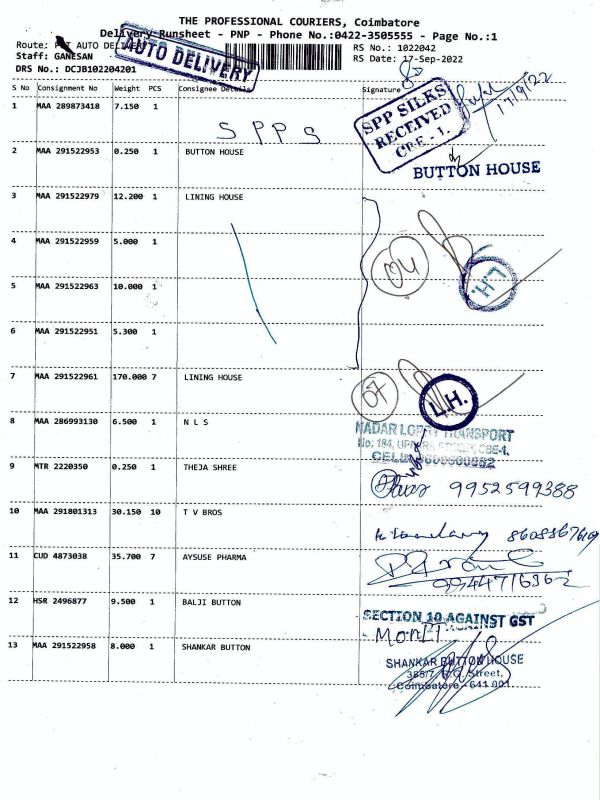 THE PROFESSIONAL COURIERS, Coimbatore
Delivery Runsheet - PNP - Phone No.:0422-3505555 - Page No.:1
Route: PVT AUTO DELIVERY
AUTO DELIVERY
RS No.: 1022042
Staff: GANESAN
RS Date: 17-Sep-2022
DRS No.: DCJB102204201
S No Consignment No Weight PCS Consignee Details Signature
1 MAA 289873418 7.150 1 S P P S
SPP SILKS
RECEIVED
CBE - 1.
17/9/22
2 MAA 291522953 0.250 1 BUTTON HOUSE
BUTTON HOUSE
3 MAA 291522979 12.200 1 LINING HOUSE
4 MAA 291522959 5.000 1
04
L.H.
5 MAA 291522963 10.000 1
6 MAA 291522951 5.300 1
7 MAA 291522961 170.000 7 LINING HOUSE
07
L.H.
8 MAA 286993130 6.500 1 N L S
NADAR LORRY TRANSPORT
No: 184, STREET, CBE-1,
CELL:
9 MTR 2220350 0.250 1 THEJA SHREE
9952599388
10 MAA 291801313 30.150 10 T V BROS
11 CUD 4873038 35.700 7 AYSUSE PHARMA
9944716962
12 HSR 2496877 9.500 1 BALJI BUTTON
SECTION 10 AGAINST GST
13 MAA 291522958 8.000 1 SHANKAR BUTTON
SHANKAR BUTTON HOUSE
Street,
Coimbatore - 641 001.